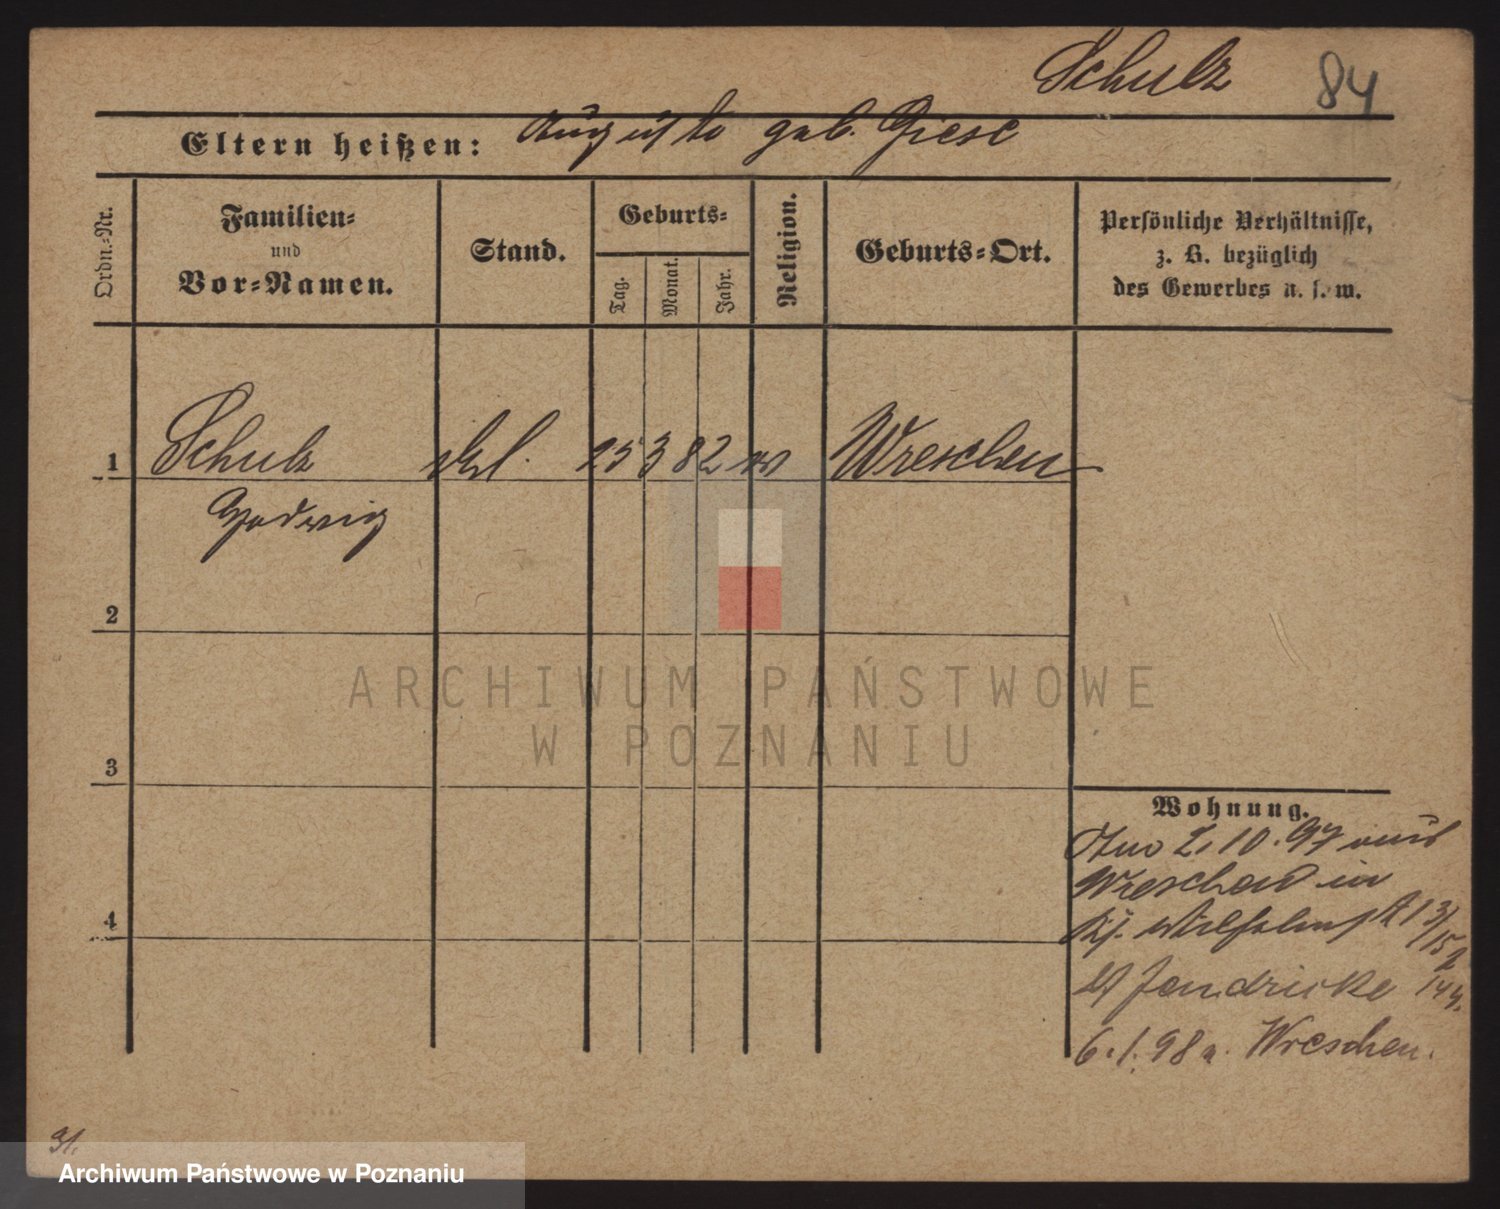 Schulz 84
Eltern heißen: Auguste geb. Giese
Ordn.-Nr.
Familien-
und
Vor-Namen.
Stand.
Geburts-
Tag.
Monat.
Jahr.
Religion.
Geburts-Ort.
Persönliche Verhältnisse,
z. B. bezüglich
des Gewerbes u. s. w.
1 Schulz 25 3 82 Wreschen
Hedwig
2
ARCHIWUM PAŃSTWOWE
W POZNANIU
3
Wohnung.
2. 10. 97 aus
Wreschen in
4
6. 1. 98 n. Wreschen.
Archiwum Państwowe w Poznaniu